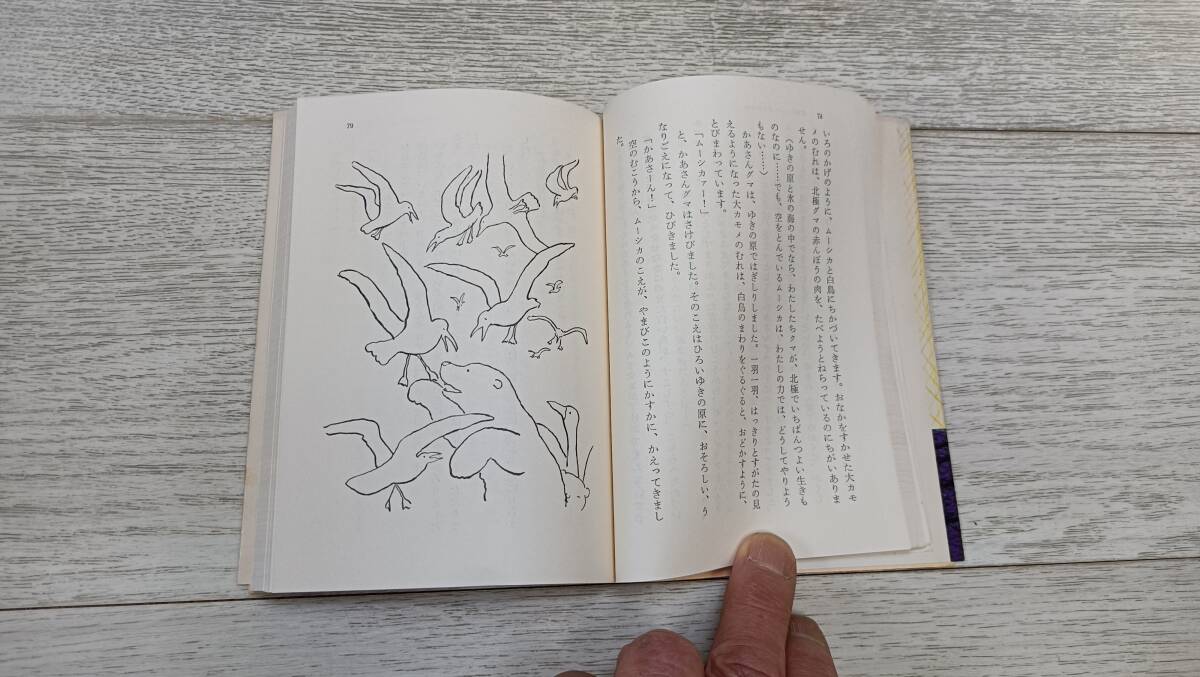 78
いろのかげのように、ムーシカと白鳥にちかづいてきます。おなかをすかせた大カモ
メのむれは、北極グマの赤んぼうの肉を、たべようとねらっているのにちがいありま
せん。
（ゆきの原と氷の海の中でなら、わたしたちクマが、北極でいちばんつよい生きも
のなのに……でも、空をとんでいるムーシカは、わたしの力では、どうしてやりよう
もない……）
かあさんグマは、ゆきの原ではぎしりしました。一羽一羽、はっきりとすがたの見
えるようになった大カモメのむれは、白鳥のまわりをぐるぐると、おどかすように、
とびまわっています。
「ムーシカァー！」
と、かあさんグマはさけびました。そのこえはひろいゆきの原に、おそろしい、う
なりごえになって、ひびきました。
「かあさーん！」
空のむこうから、ムーシカのこえが、やまびこのようにかすかに、かえってきまし
た。
79